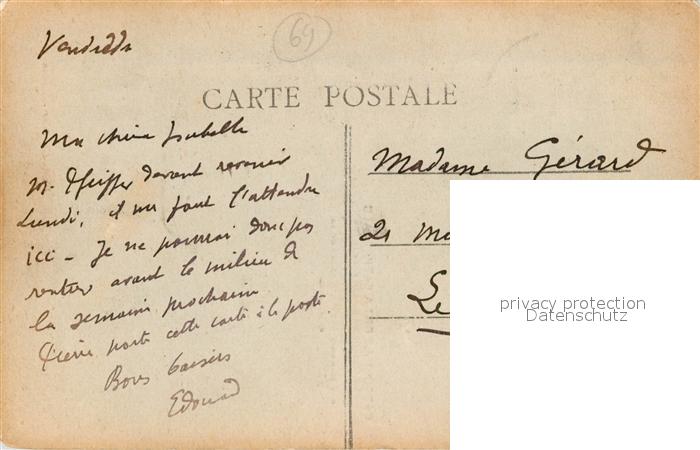 Vendredi
69
CARTE POSTALE
Ma chère Isabelle
M. Pfeiffer devant revenir
Lundi, il me faut l'attendre
ici - Je ne pourrai donc pas
rentrer avant le milieu de
la semaine prochaine
Pierre porte cette carte à la poste.
Bons baisers
Edouard
Madame Gérard
21
Le
privacy protection
Datenschutz